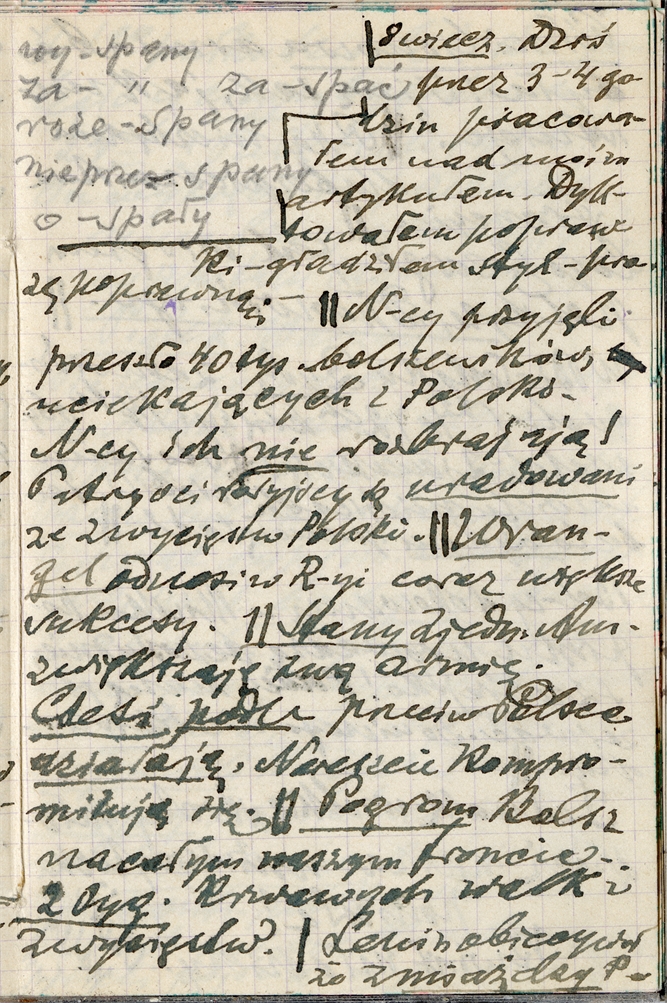 wy-spany
za- " za-spać
roze-spany
nieprze-spany
o-spały
8 wiecz. Dziś
przez 3-4 go-
dzin pracowa-
łem nad moim
artykułem. Dyk-
towałem popraw
ki-gładziłem styl-pra-
cę poprawną. -
|| N-cy przyjęli
przeszło 40 tys. bolszewików,
uciekających z Polski.
N-cy ich nie rozbrajają!
Patryoci są uradowani
ze zwycięstw Polski. || Wran-
gel odnosi w R-yi coraz większe
sukcesy. || Stany Zjedn. Am.
zwiększają swą armię.
Czesi podle przeciw Polsce
działają. Nareszcie kompro-
mitują się. || Pogrom Bolsz
na całym naszym froncie.
2 tyg. krwawych walk i
zwycięstw. | Lenin obiecywał
że zmiażdży P-